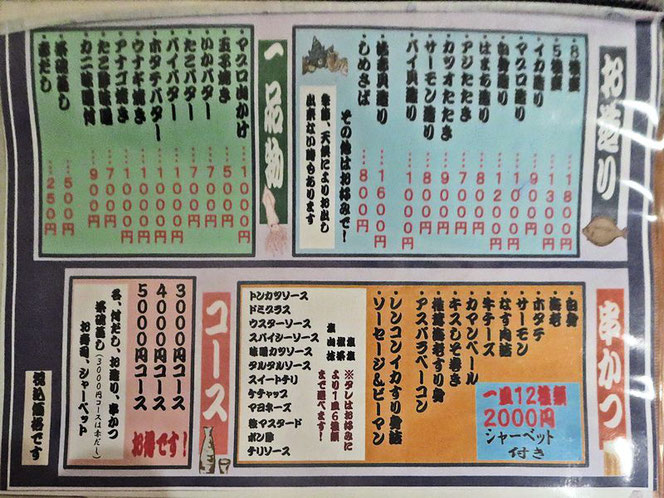 お造り
8種盛…1800円
5種盛…1300円
イカ造り
マグロ造り
白身造り…1200円
はまち造り…800円
アジたたき…700円
カツオたたき…900円
サーモン造り
バイ貝造り…1000円
活赤貝造り…1600円
しめさば…800円
その他はお好みで!
季節、天候によりお出し
出来ない時もあります
一品物
マグロ山かけ…1000円
玉子焼き…500円
いかバター
たこバター…700円
バイバター…1000円
ホタテバター
ウナギ焼き…1000円
アナゴ焼き
たこ酢味噌…700円
カニ味噌付…900円
茶碗蒸し…500円
赤だし…250円
串かつ
白身
海老
ホタテ
サーモン
なす肉詰
牛チーズ
カマンベール
キスしそ巻き
椎茸海老すり身
アスパラベーコン
レンコンイカすり身詰
ソーセージ&ピーマン
一皿12種類
2000円
シャーベット
付き
※タレはお好みに
より1皿6種類
まで選べます!
トンカツソース
ドミグラス
ウスターソース
スパイシーソース
味噌カツソース
タルタルソース
スイートチリ
ケチャップ
マヨネーズ
粒マスタード
ポン酢
チリソース
コース
3000円コース
4000円コース
5000円コース
お得です!
各、付だし、お造り、串かつ
茶碗蒸し(3000円コースは赤だし)
お寿司、シャーベット
税込価格です